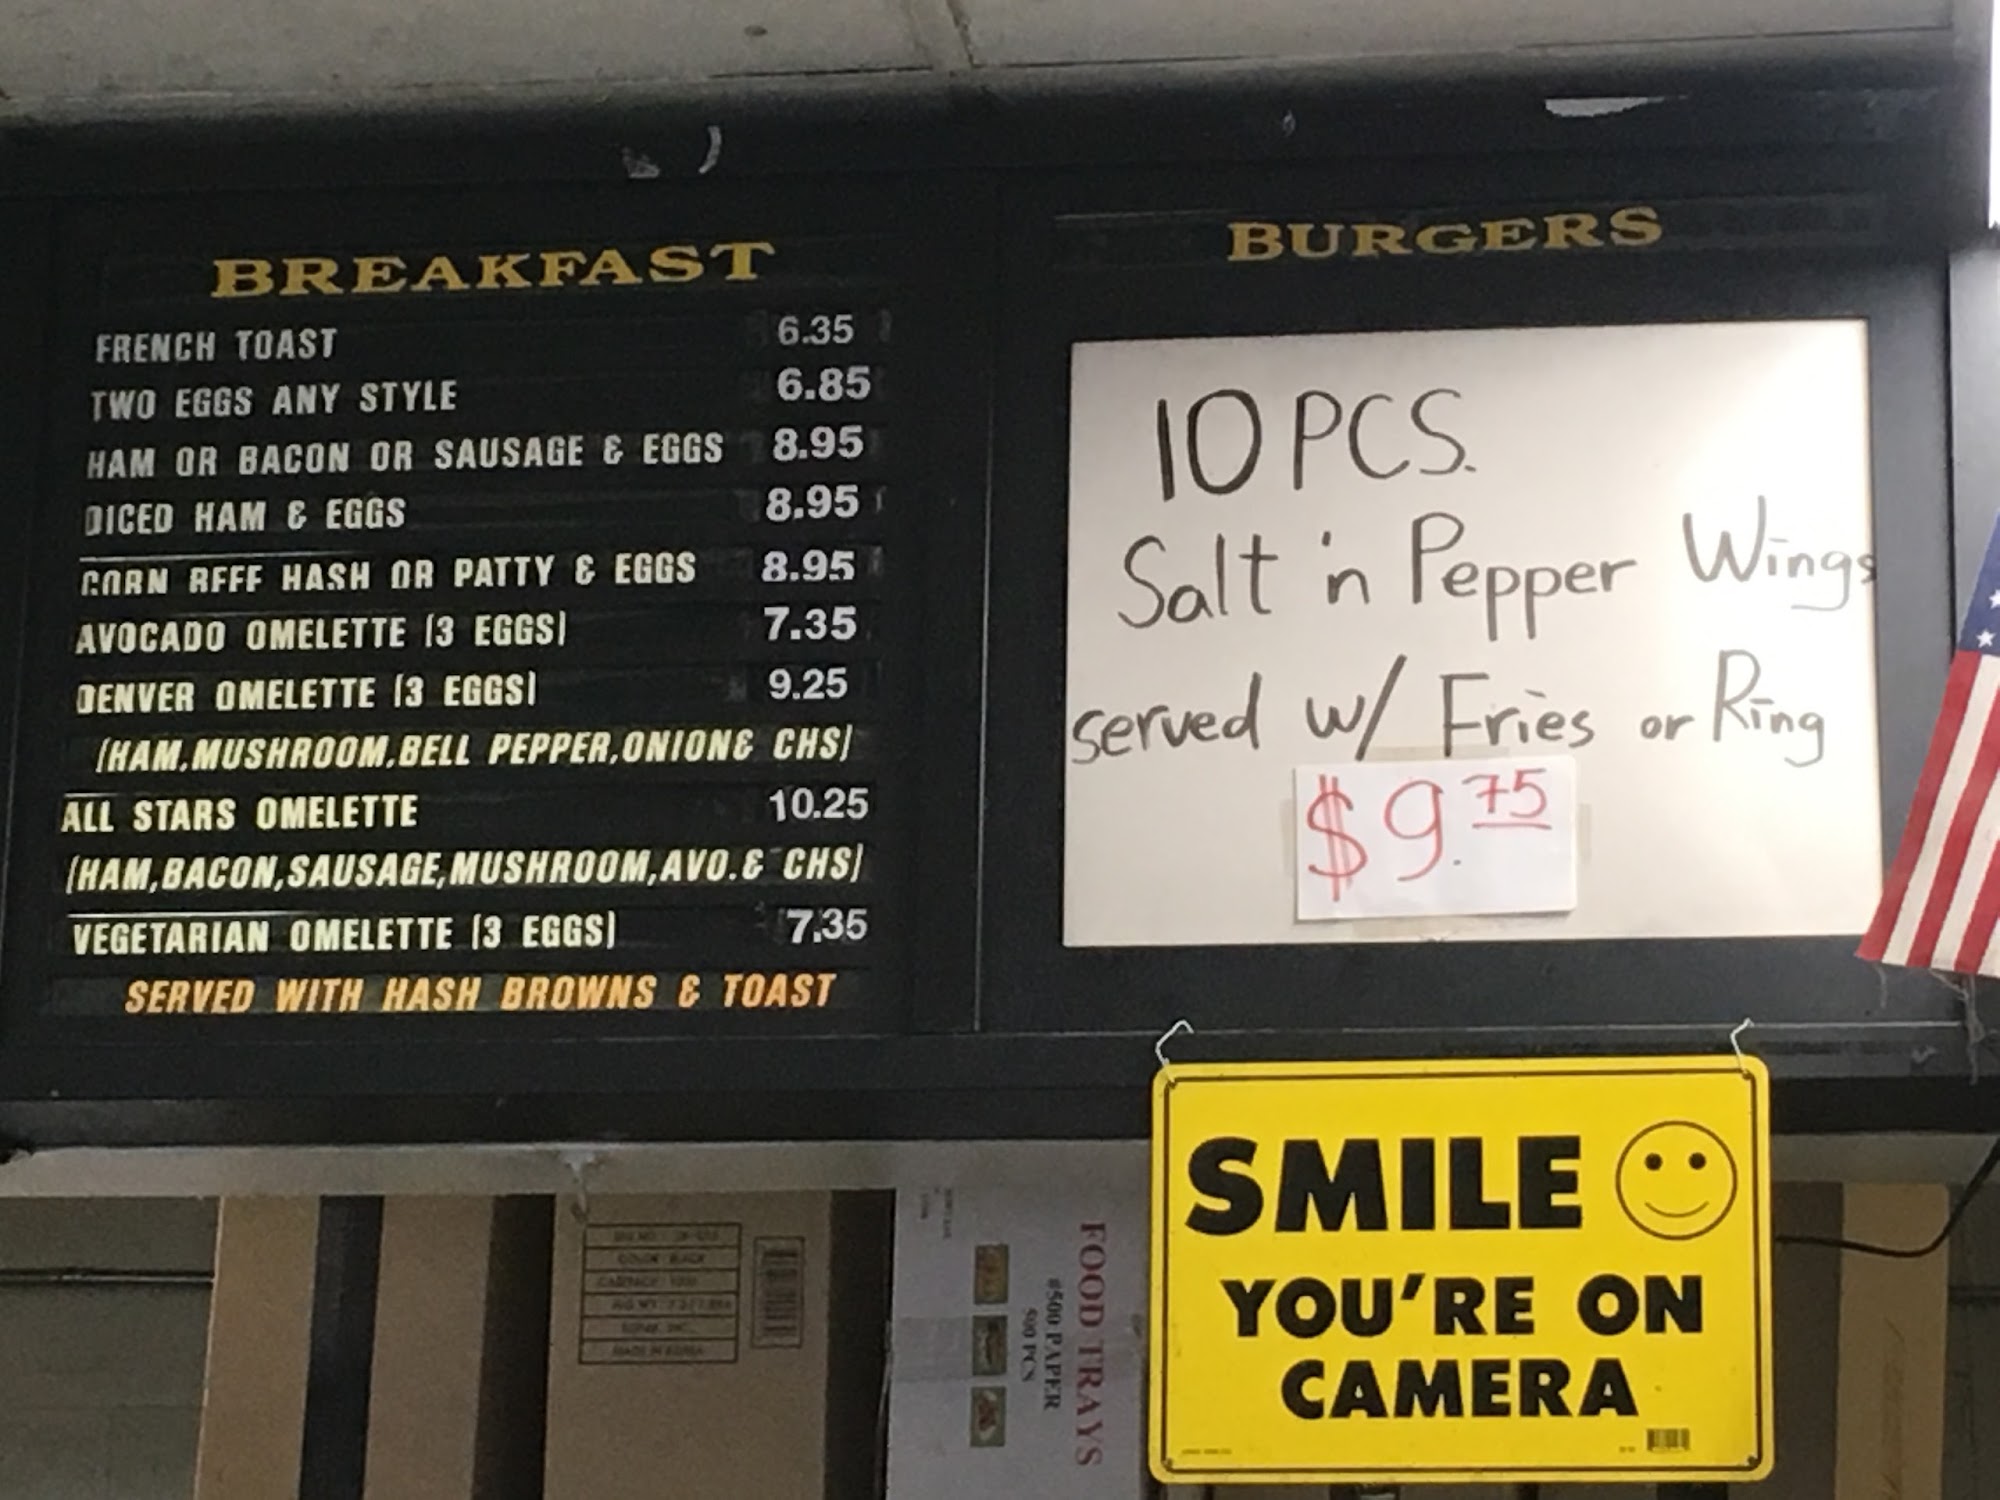 BREAKFAST
FRENCH TOAST 6.35
TWO EGGS ANY STYLE 6.85
HAM OR BACON OR SAUSAGE & EGGS 8.95
DICED HAM & EGGS 8.95
CORN BEEF HASH OR PATTY & EGGS 8.95
AVOCADO OMELETTE (3 EGGS) 7.35
DENVER OMELETTE (3 EGGS) 9.25
(HAM,MUSHROOM,BELL PEPPER,ONION& CHS)
ALL STARS OMELETTE 10.25
(HAM,BACON,SAUSAGE,MUSHROOM,AVO.& CHS)
VEGETARIAN OMELETTE (3 EGGS) 7.35
SERVED WITH HASH BROWNS & TOAST
BURGERS
10 PCS.
Salt 'n Pepper Wings
served w/ Fries or Ring
$9.75
SMILE
YOU'RE ON
CAMERA
FOOD TRAYS
#500 PAPER
500 PCS
COLOR: BLACK
MADE IN KOREA